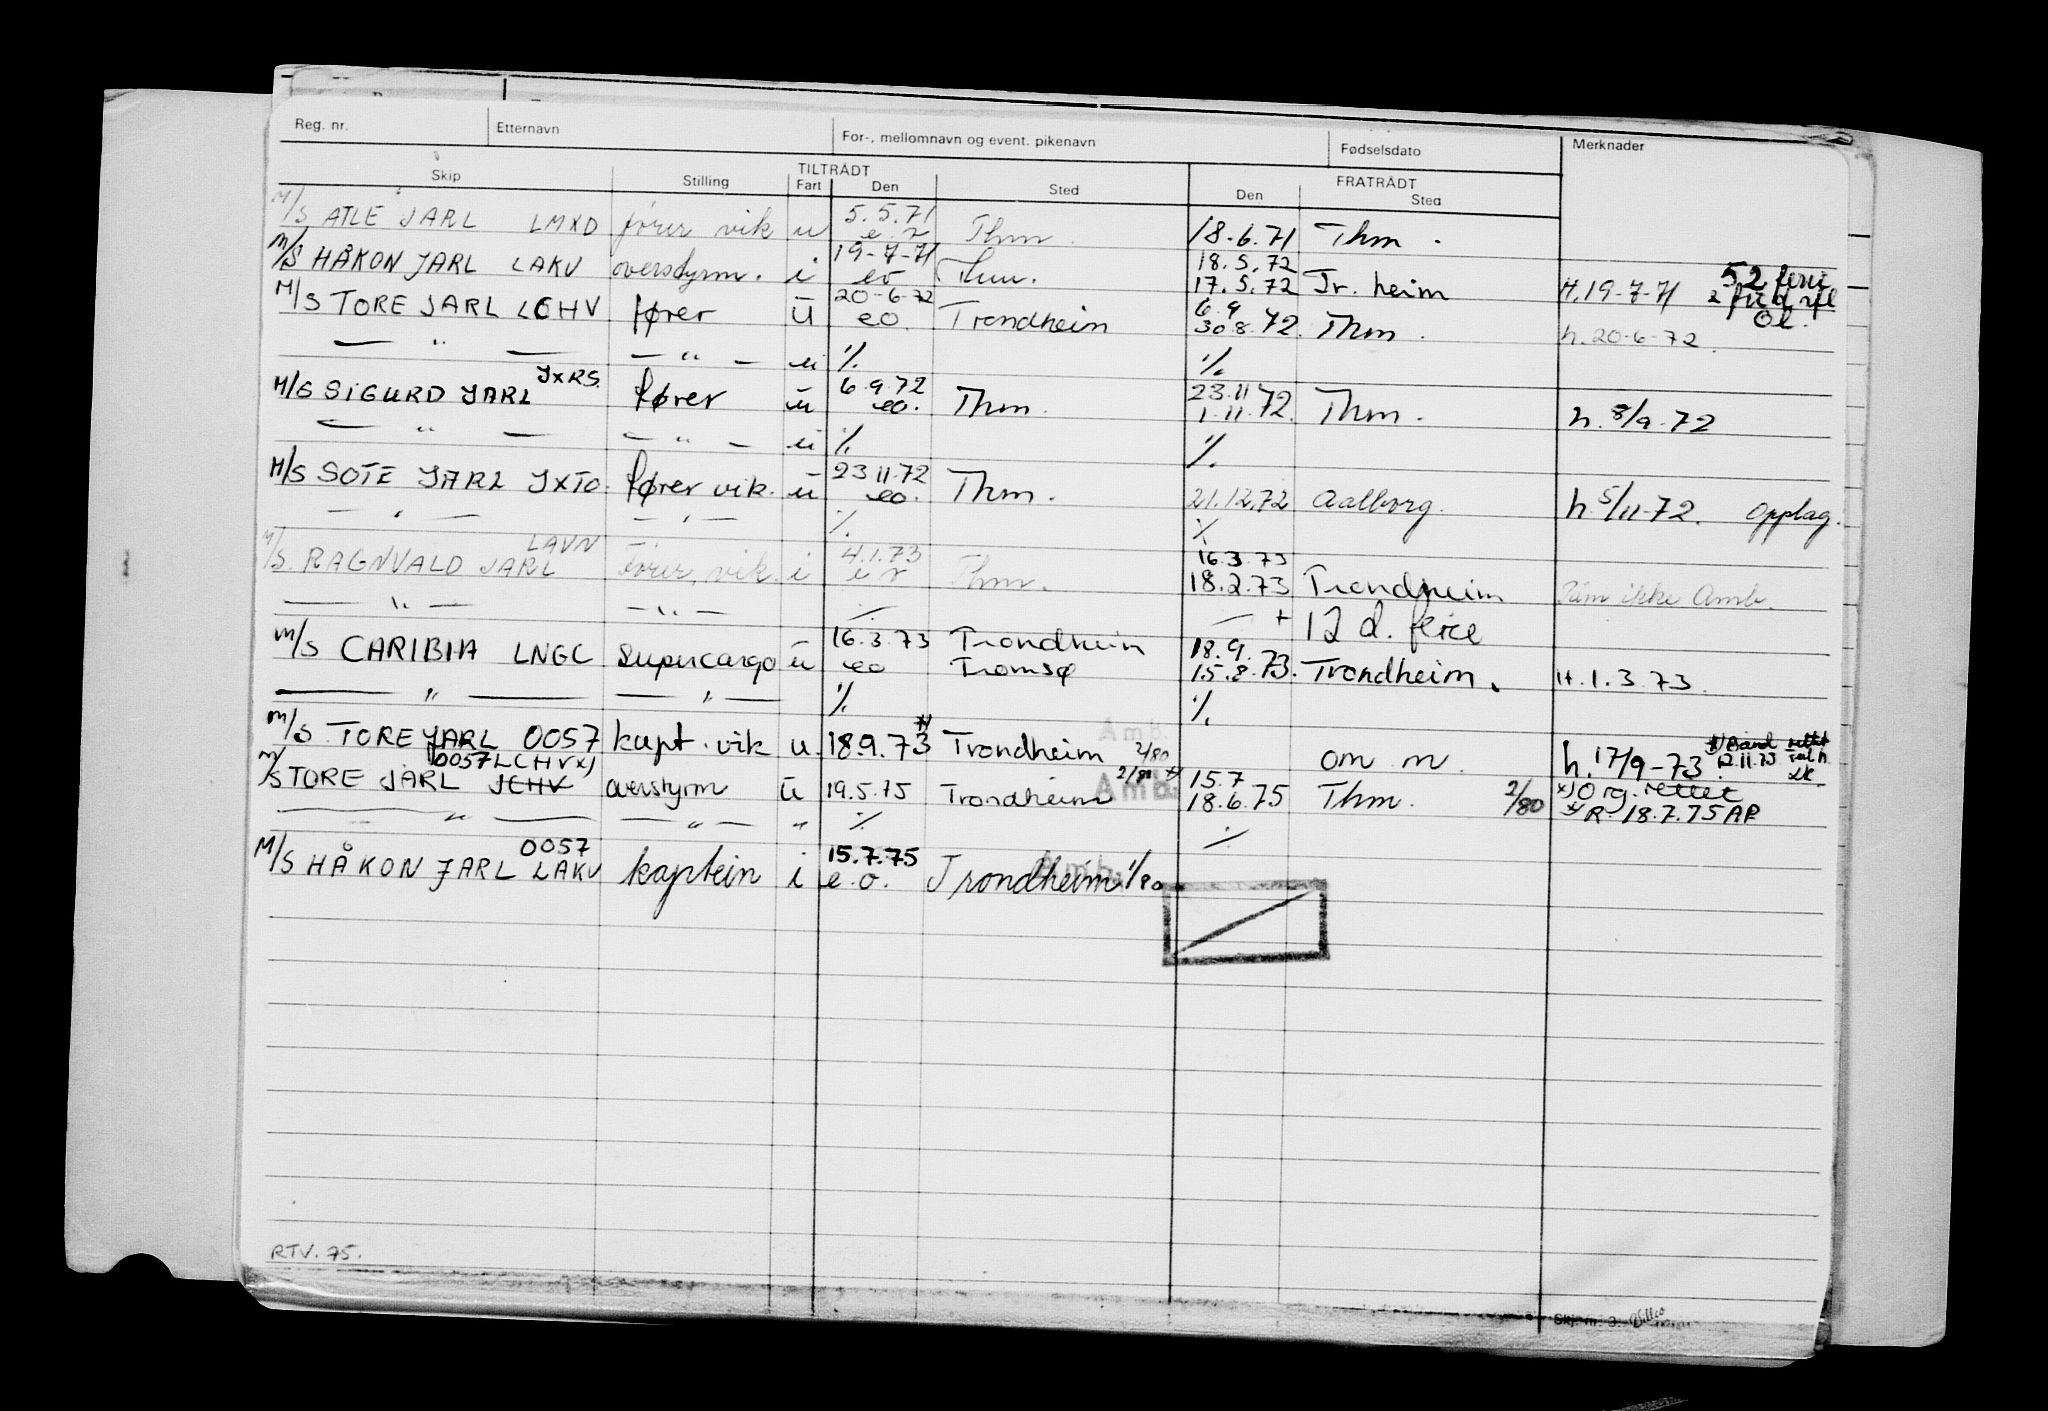 Reg. nr. Etternavn For-, mellomnavn og event. pikenavn Fødselsdato Merknader
TILTRÅDT FRATRÅDT
Skip Stilling Fart Den Sted Den Sted
M/S ATLE JARL LMXD fører vik u 5.5.71 Thm. 18.6.71 Thm.
M/S HÅKON JARL LAKV overstyrm. i 19-7-71 eo Thm. 18.5.72 17.5.72 Tr.heim H.19-7-71
M/S TORE JARL LCHV fører u 20-6-72 eo. Trondheim 6.9 30.8.72. Thm. h.20-6-72.
— " — — " — u % %
M/S SIGURD JARL JXRS. fører u 6.9.72 eo. Thm. 23.11 1.11.72. Thm. h. 8/9.72
— " — — " — u % %
M/S SOTE JARL JXTO. fører vik. u 23.11.72 eo. Thm. 21.12.72 Aalborg. h 5/11-72. Opplag.
— " — — " — % %
M/S. RAGNVALD JARL LAVN fører, vik. i 4.1.73 Thm. 16.3.73 18.2.73 Trondheim ikke Amb.
— " — — " — % — + 12 d. ferie
M/S CARIBIA LNGC Supercargo u 16.3.73 eo Trondheim Tromsø 18.9. 15.8.73. Trondheim. H.1.3.73.
— " — — " — % %
M/S TORE JARL 0057 kapt. vik u. 18.9.73 Trondheim Amb. 2/80 om m. h.17/9-73.
M/S TORE JARL 0057 LCHV x) JCHV overstyrm u 19.5.75 Trondheim Amb. 2/80 15.7 18.6.75 Thm. 2/80 x) Org. rettet
— " — — " — " % % R. 18.7.75 AP
M/S HÅKON JARL 0057 LAKV kaptein i 15.7.75 e.o. Trondheim Amb. 1/80
RTV. 75.
Skj. nr. 3.